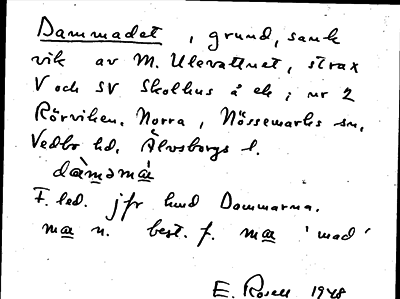 Dammadet, grund, sank
vik av M. Ulevattnet, strax
V och SV Skolhus å ek; nr 2
Rörviken, Norra, Nössemarks sn,
Vedbo hd, Älvsborgs l.
dàməmá
F. led. jfr hmd Dammarna.
ma n. best. f. ma 'mad'
E. Rosell 1948